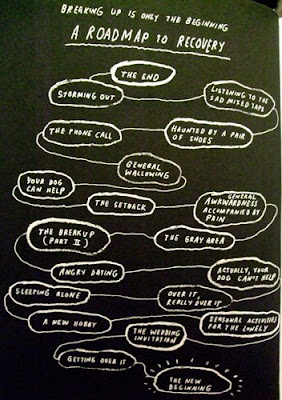 BREAKING UP IS ONLY THE BEGINNING
A ROADMAP TO RECOVERY
THE END
STORMING OUT
LISTENING TO THE
SAD MIXED TAPE
THE PHONE CALL
HAUNTED BY A PAIR
OF SHOES
GENERAL
WALLOWING
YOUR DOG
CAN HELP
THE SETBACK
GENERAL
AWKWARDNESS
ACCOMPANIED BY
PAIN
THE BREAKUP
(PART II)
THE GRAY AREA
ANGRY DATING
ACTUALLY, YOUR
DOG CAN'T HELP
SLEEPING ALONE
OVER IT,
REALLY OVER IT
A NEW HOBBY
THE WEDDING
INVITATION
SEASONAL ACTIVITIES
FOR THE LONELY
GETTING OVER IT
THE NEW
BEGINNING